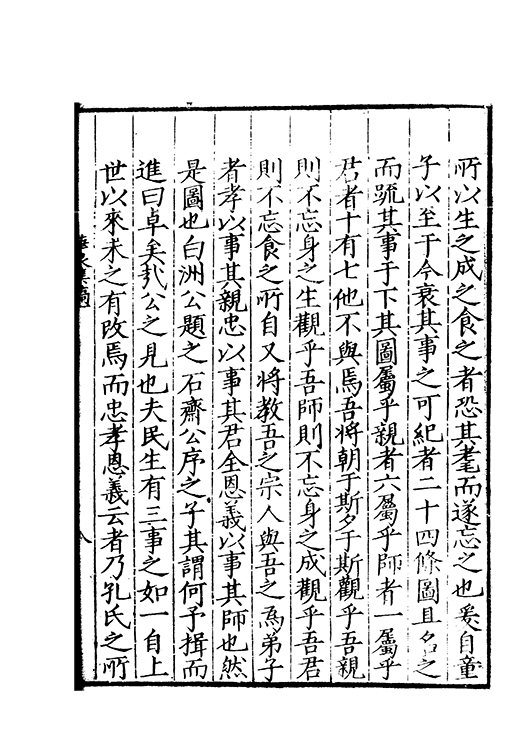 所以生之成之食之者恐其耄而遂忘之也爰自童
子以至于今衰其事之可紀者二十四條圖且名之
而䟽其事于下其圖屬乎親者六屬乎師者一屬乎
君者十有七他不與焉吾將朝于斯夕于斯觀乎吾親
則不忘身之生觀乎吾師則不忘身之成觀乎吾君
則不忘食之所自又將教吾之宗人與吾之為弟子
者孝以事其親忠以事其君全恩義以事其師也然
是圖也白洲公題之石齋公序之子其謂何予揖而
進曰卓矣㢤公之見也夫民生有三事之如一自上
世以來未之有改焉而忠孝恩義云者乃孔氏之所
八